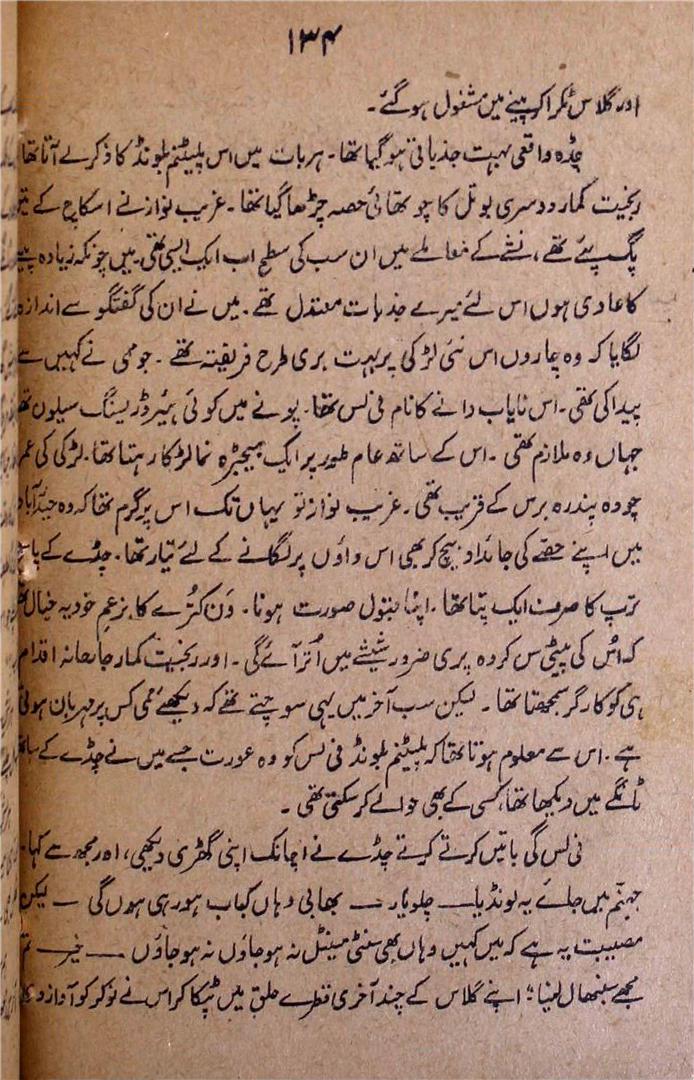 ۱۳۴
اور گلاس ٹکرا کر پینے میں مشغول ہو گئے ۔
چڈہ واقعی بہت جذباتی ہو گیا تھا ۔ ہر بات میں اس پلیٹنم بلونڈ کا ذکر لے آتا تھا
رنجیت کمار دوسری بوتل کا چوتھائی حصہ چڑھا گیا تھا ۔ غریب نواز نے اسکاچ کے تین
پگ پئے تھے ، نشے کے معاملے میں ان سب کی سطح اب ایک ایسی تھی ۔ میں چونکہ زیادہ پینے
کا عادی ہوں اس لئے میرے جذبات معتدل تھے ۔ میں نے ان کی گفتگو سے اندازہ
لگایا کہ وہ چاروں اس نئی لڑکی پر بہت بری طرح فریفتہ تھے ۔ جو ممی نے کہیں سے
پیدا کی تھی ۔ اس نایاب دانے کا نام فی لس تھا ۔ پونے میں کوئی ہیئر ڈریسنگ سیلون تھا
جہاں وہ ملازم تھی ۔ اس کے ساتھ عام طور پر ایک ہیجڑہ نما لڑکا رہتا تھا ۔ لڑکی کی عمر
چودہ پندرہ برس کے قریب تھی ۔ غریب نواز تو یہاں تک اس پر گرم تھا کہ وہ حیدرآباد
میں اپنے حصے کی جائداد بیچ کر بھی اس داؤں پر لگانے کے لئے تیار تھا ۔ چڈے کے پاس
ترپ کا صرف ایک پتا تھا ۔ اپنا قبول صورت ہونا ۔ ون کترے کا بزعم خود یہ خیال تھا
کہ اُس کی پیٹی سن کر وہ پری ضرور شیشے میں اُتر آئے گی ۔ اور رنجیت کمار جارحانہ اقدام
ہی کو کارگر سمجھتا تھا ۔ لیکن سب آخر میں یہی سوچتے تھے کہ دیکھئے ممی کس پر مہربان ہوتی
ہے ۔ اس سے معلوم ہوتا تھا کہ پلیٹنم بلونڈ فی لس کو وہ عورت جسے میں نے چڈے کے ساتھ
ٹانگے میں دیکھا تھا، کسی کے بھی حوالے کر سکتی تھی ۔
فی لس کی باتیں کرتے کرتے چڈے نے اچانک اپنی گھڑی دیکھی ، اور مجھ سے کہا ۔
جہنم میں جائے یہ لونڈیا ـــ چلو یار ـــ بھابی وہاں کباب ہو رہی ہوں گی ـــ لیکن
مصیبت یہ ہے کہ میں کہیں وہاں بھی سنٹی مینٹل نہ ہو جاؤں نہ ہو جاؤں ـــ خیر ـــ تم
مجھے سنبھال لینا ؛ اپنے گلاس کے چند آخری قطرے حلق میں ٹپکا کر اس نے نوکر کو آواز دی